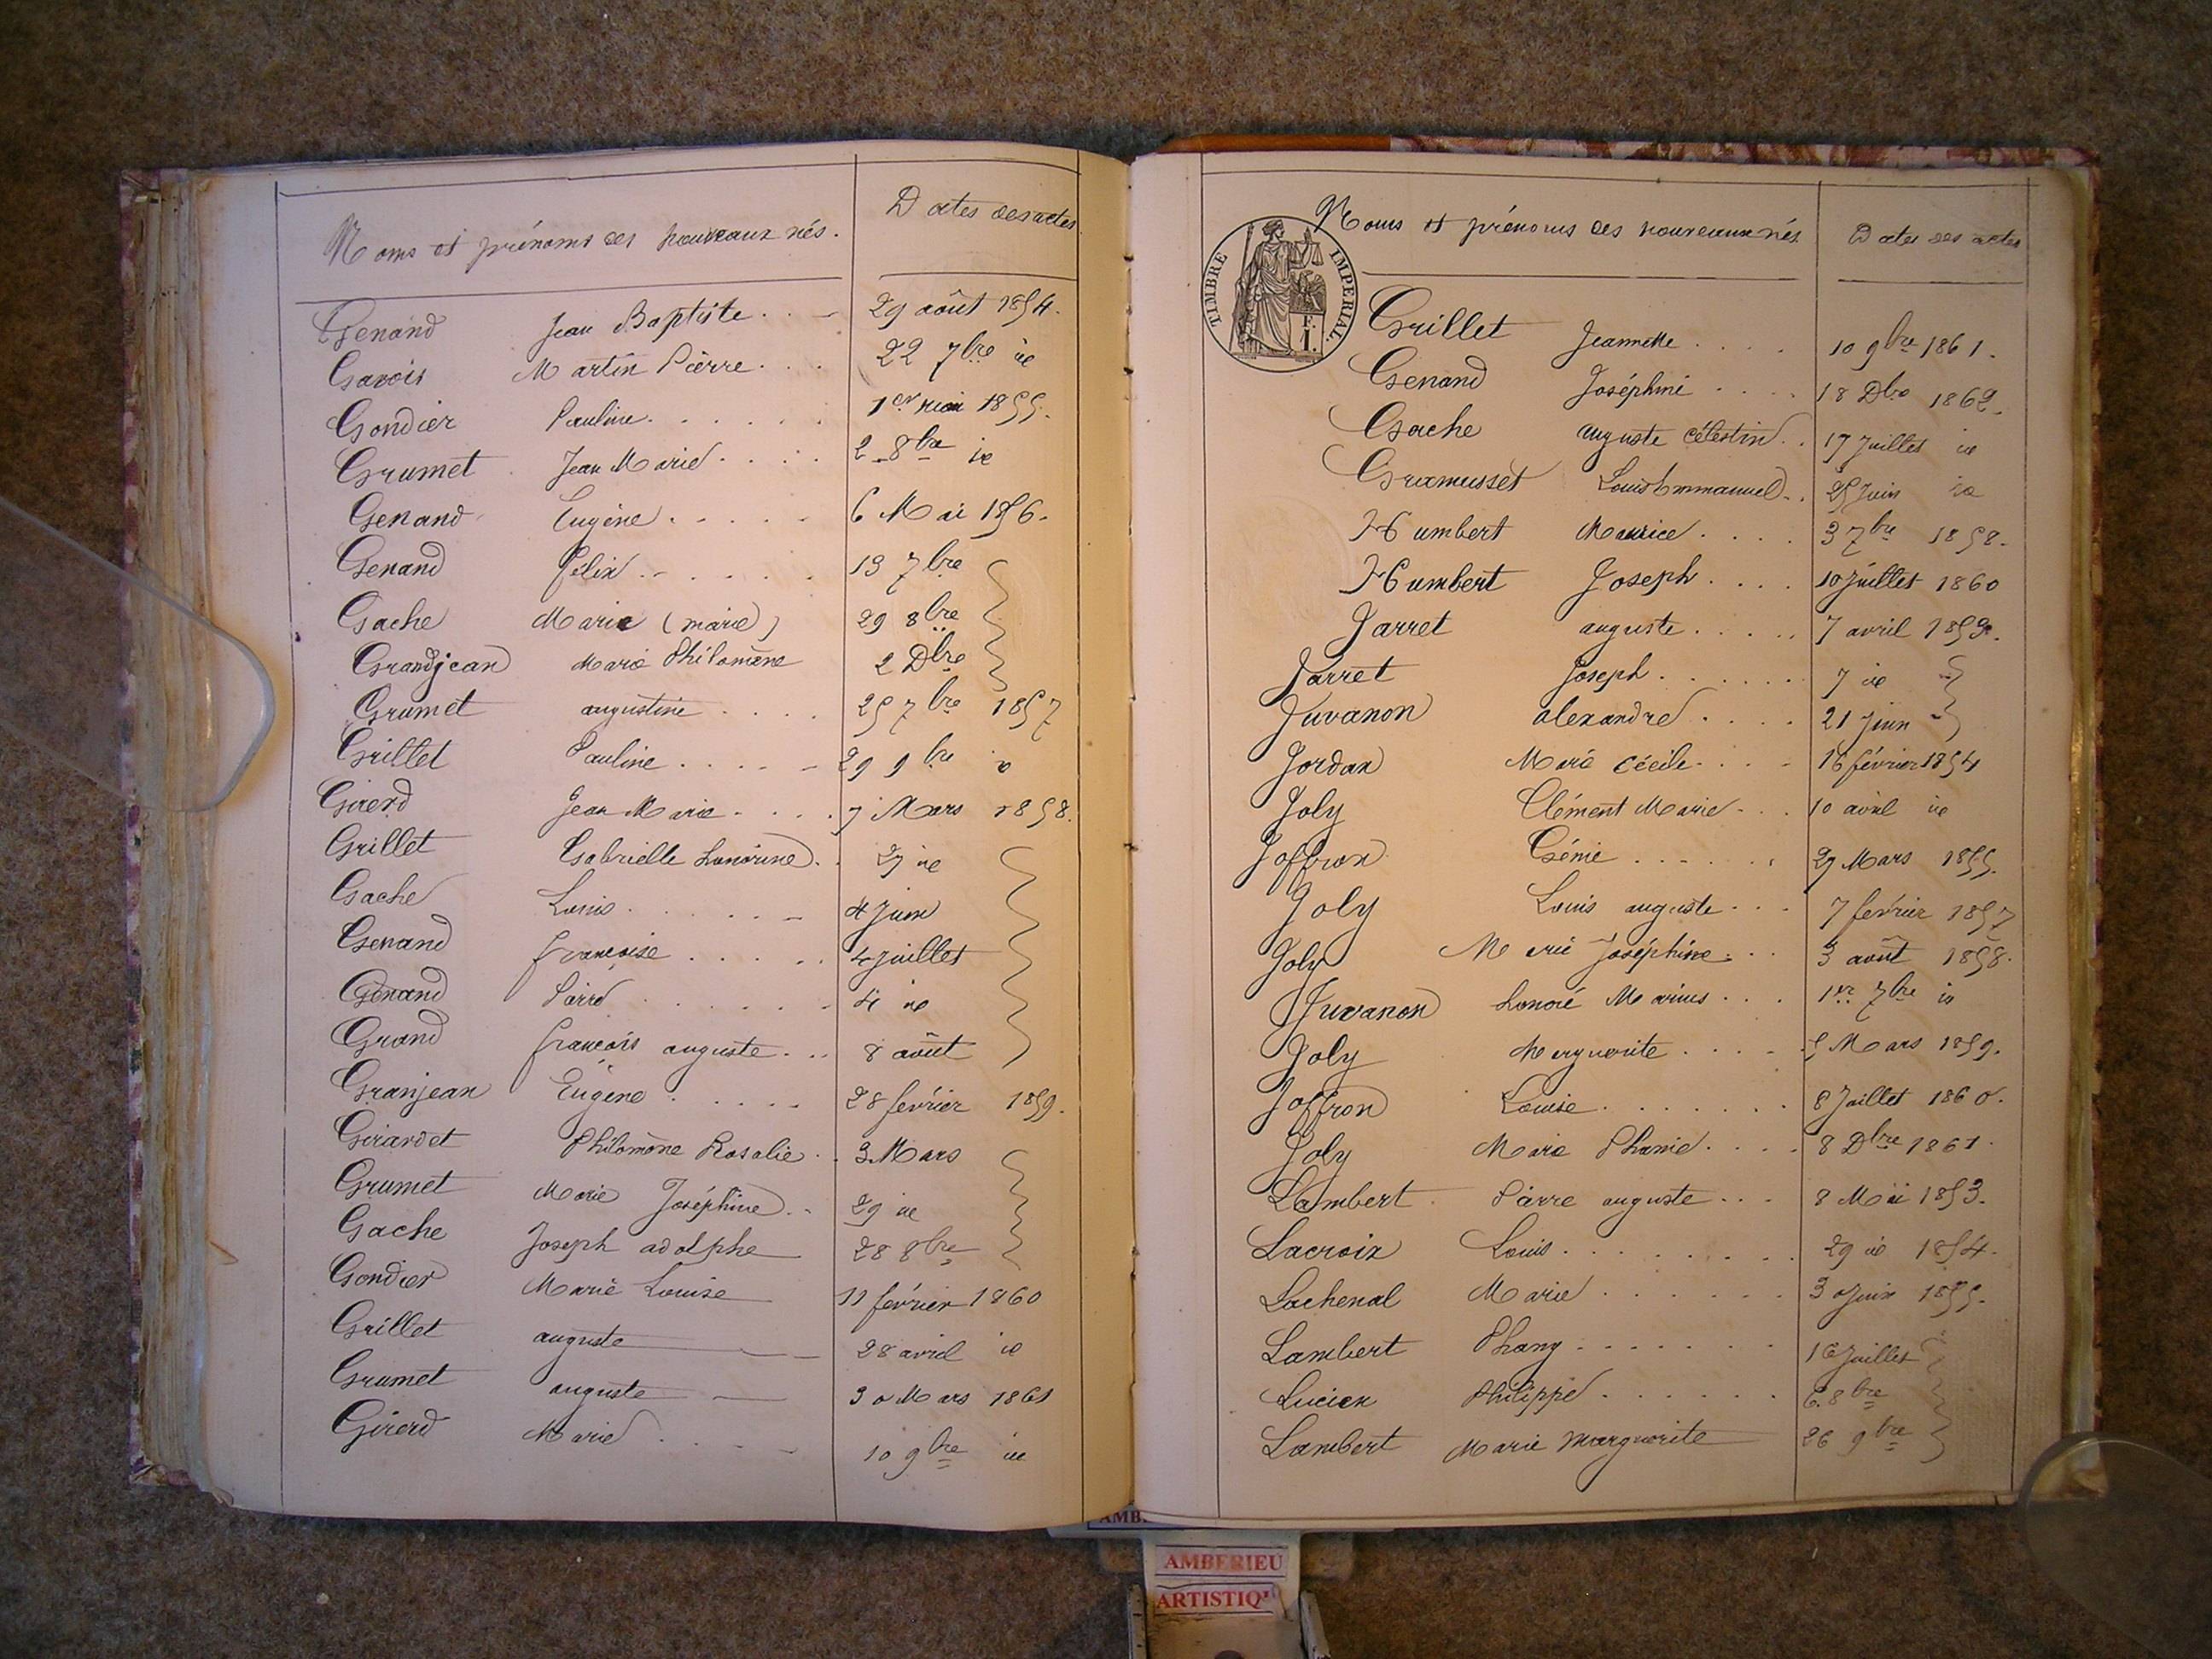 Noms et prénoms des nouveaux nés.
Dates des actes
Genand Jean Baptiste 29 août 1854.
Gavois Martin Pierre 22 7bre id
Gondier Pauline 1er mai 1855.
Grumet Jean Marie 2 8bre id
Genand Eugène 6 Mai 1856.
Genand félix 13 7bre
Gache Marie (marie) 29 8bre
Grandjean Marie Philomène 2 Dbre
Grumet augustine 25 7bre 1857
Grillet Pauline 29 9bre id
Girerd Jean Marie 7 Mars 1858.
Grillet Gabrielle honorine 27 id
Gache Louis 4 Juin
Genand françoise 4 juillet
Genand Pierre 4 id
Grand françois auguste 8 août
Granjean Eugène 28 février 1859.
Girardet Philomène Rosalie 3 Mars
Grumet Marie Joséphine 29 id
Gache Joseph adolphe 28 8bre
Gondier Marie Louise 11 février 1860
Grillet auguste 28 avril id
Grumet auguste 30 Mars 1861
Girerd Marie 10 9bre id
TIMBRE IMPERIAL.
F.
1.
Noms et prénoms des nouveaux nés
Dates des actes
Grillet Jeannette 10 9bre 1861.
Genand Joséphine 18 Dbre 1862.
Gache auguste célestin 17 Juillet id
Gramusset Louis Emmanuel 25 Juin id
Humbert Maurice 3 7bre 1858.
Humbert Joseph 10 juillet 1860
Jarret auguste 7 avril 1853.
Jarret Joseph 7 id
Juvanon alexandre 21 Juin
Jordan Marie Cécile 16 février 1854
Joly Clément Marie 10 avril id
Joffron Génie 29 Mars 1855.
Joly Louis auguste 7 février 1857
Joly Marie Joséphine 3 août 1858.
Juvanon honoré Marius 1er 7bre id
Joly Marguerite 5 Mars 1859.
Joffron Louise 8 Juillet 1860.
Joly Marie Phanie 8 Dbre 1861.
Lambert Pierre auguste 8 Mai 1853.
Lacroix Louis 29 id 1854.
Lachenal Marie 30 Juin 1855.
Lambert Phany 16 Juillet
Lucien Philippe 6. 8bre
Lambert Marie Marguerite 26 9bre
AMB
AMBERIEU
ARTISTIQ